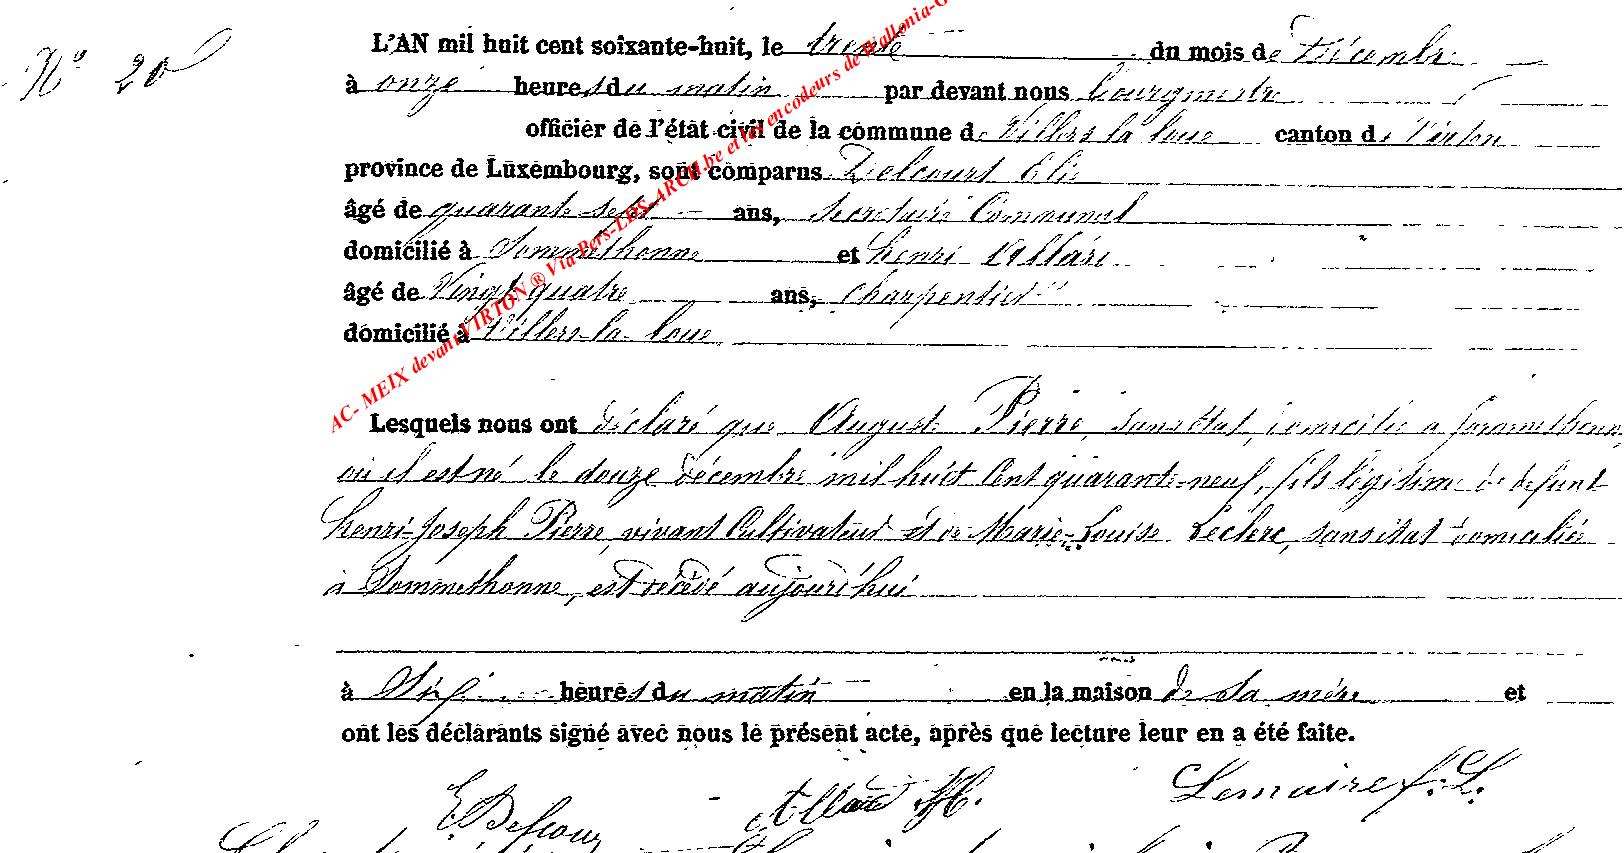 N° 20
L'AN mil huit cent soixante-huit, le trente du mois de Décembre
à onze heures du matin par devant nous bourgmestre
officier de l'état civil de la commune de Villers la loue canton de Virton
province de Luxembourg, sont comparus Delcourt Elie
âgé de quarante sept ans, secretaire Communal
domicilié à Sommethonne et henri Allard
âgé de Vingt quatre ans, charpentier
domicilié à Villers-la-loue
AC- MEIX devant VIRTON ® Via Pers-LDS-ARCH.be et les encodeurs de Wallonia-G
Lesquels nous ont déclaré que August Pierre, sans état, domicilié a Sommethonne,
où il est né le douze décembre mil huit Cent quarante-neuf, fils légitime de defunt
henri-Joseph Pierre, vivant Cultivateur et de Marie-Louise Leclerc, sans état domiciliée
à Sommethonne, est décédé aujourd'hui
à heures du matin en la maison de sa mère et
ont les déclarants signé avec nous le présent acte, après que lecture leur en a été faite.
E. Delcour Allard H. Lemaire f. L.